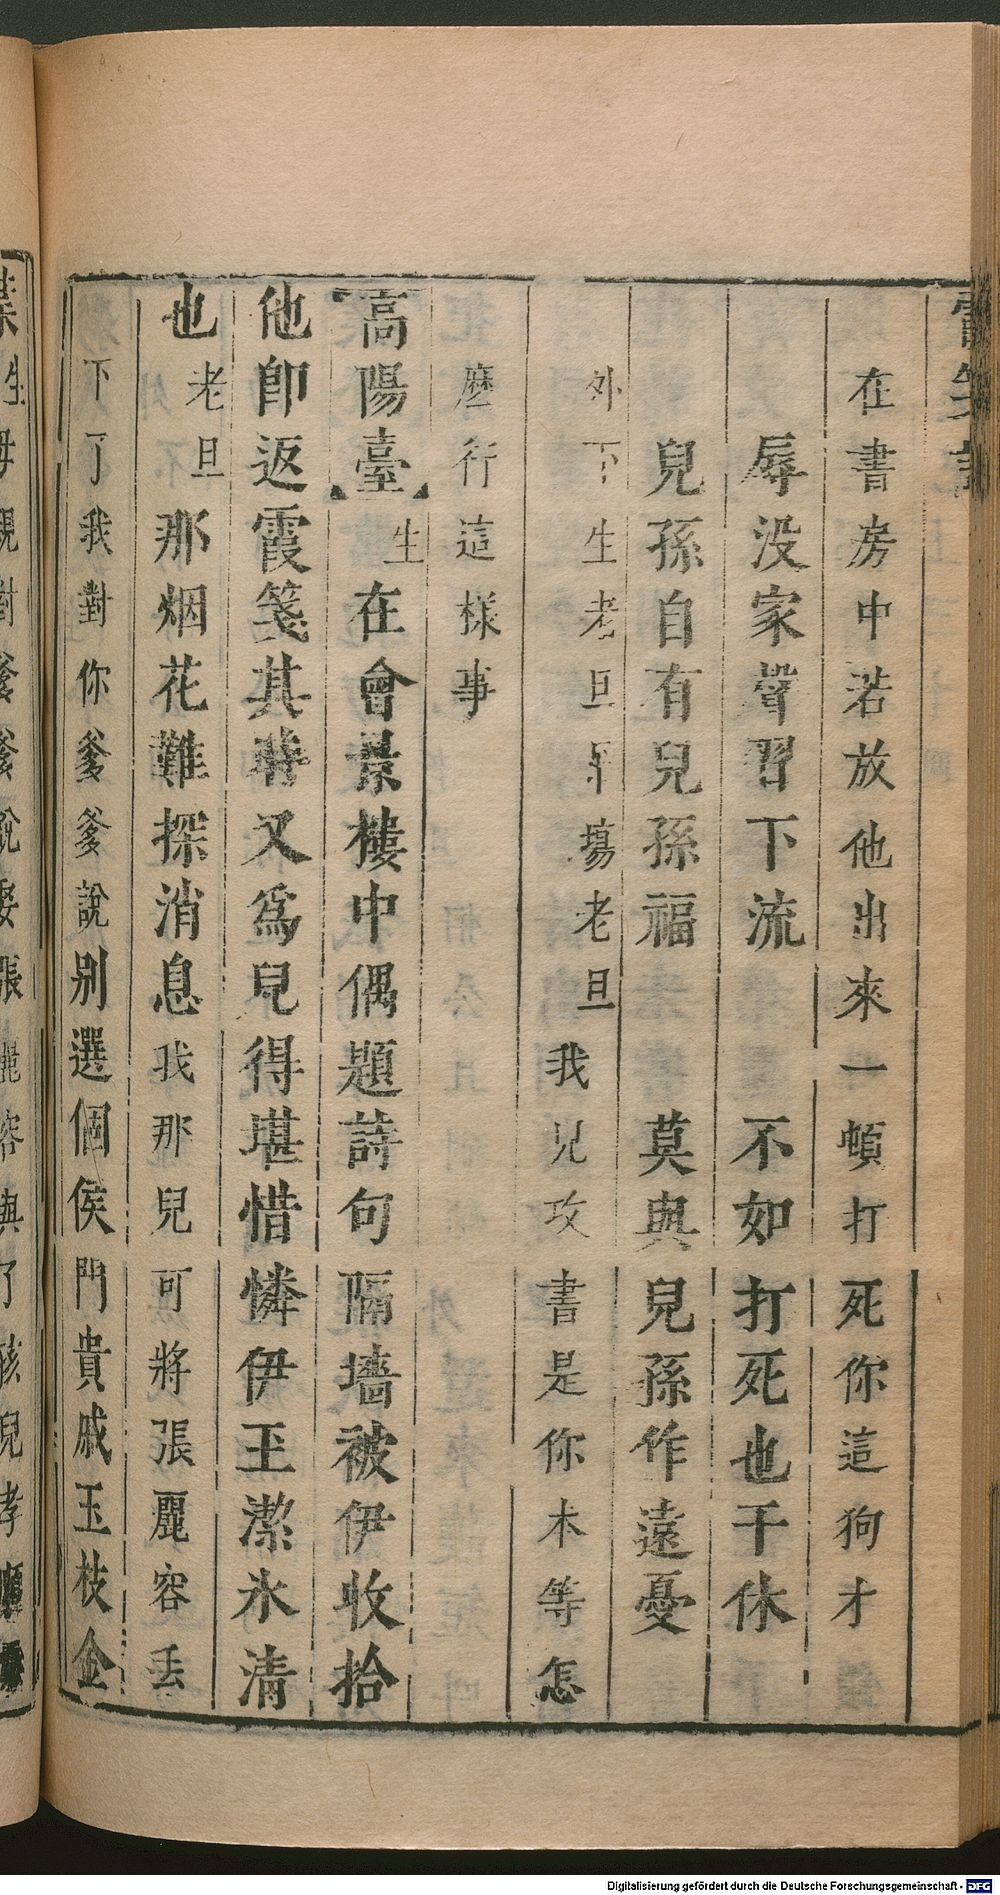 在書房中若放他出來一頓打死你這狗才
辱没家聲習下流　不如打死也干休
兒孫自有兒孫福　莫與兒孫作遠憂
外下生老旦吊塲老旦我兒攻書是你本等怎
麽行這樣事
【高陽臺】生在會景樓中偶題詩句隔墻被伊收拾
他卽返霞箋其時又爲兒得堪惜憐伊玉潔氷清
也老旦那烟花難探消息我那兒可將張麗容丢
下了我對你爹爹說别選個侯門貴戚玉枝金
Digitalisierung gefördert durch die Deutsche Forschungsgemeinschaft - DFG